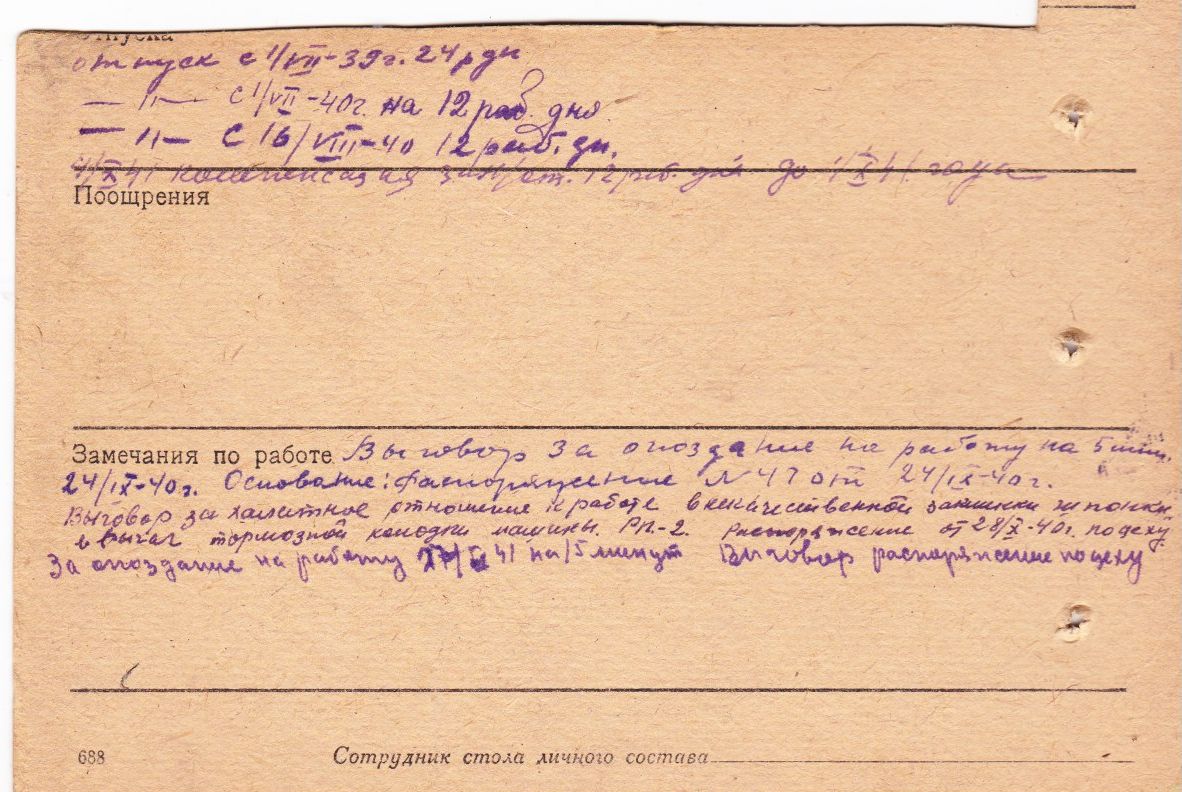 Отпуска
отпуск с 1/VII-39г. 24 рдн
— 〃 — с 1/VII-40г. на 12 раб. дня
— 〃 — с 16/VIII-40 12 раб. дн.
компенсация за 12 раб. дня до 1/X 41 года
Поощрения
Замечания по работе Выговор за опоздание на работу на 5 мин.
24/IX-40г. Основание: Распоряжение N 47 от 24/IX-40г.
Выговор за халатное отношение к работе в некачественной зашпонки
в рычаг тормозной колодки машины РП-2. Распоряжение от 28/X-40г. по цеху.
За опоздание на работу 41 на 15 минут Выговор распоряжение по цеху
688 Сотрудник стола личного состава